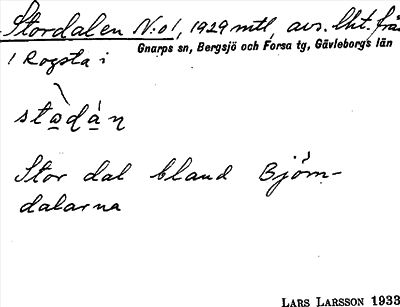 Stordalen N:o 1, 1929 mtl, avs. lht. från
1 Rogsta i Gnarps sn, Bergsjö och Forsa tg, Gävleborgs län
stadán
Stor dal bland Björn-
dalarna
LARS LARSSON 1933